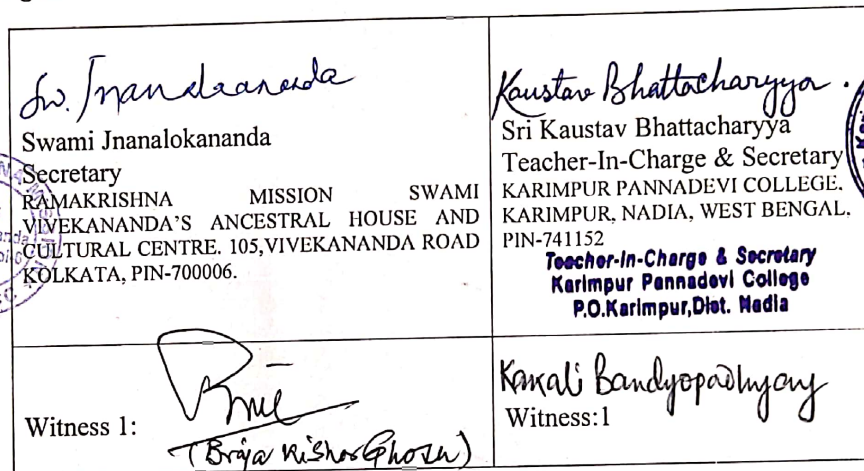 Sw. Jnanalokananda
Swami Jnanalokananda
Secretary
RAMAKRISHNA MISSION SWAMI
VIVEKANANDA'S ANCESTRAL HOUSE AND
CULTURAL CENTRE. 105,VIVEKANANDA ROAD
KOLKATA, PIN-700006.
Kaustav Bhattacharyya.
Sri Kaustav Bhattacharyya
Teacher-In-Charge & Secretary
KARIMPUR PANNADEVI COLLEGE.
KARIMPUR, NADIA, WEST BENGAL.
PIN-741152
Teacher-in-Charge & Secretary
Karimpur Pannadevi College
P.O.Karimpur,Dist. Nadia
Witness 1:
(Braja Kishor Ghosh)
Kakali Bandyopadhyay
Witness:1